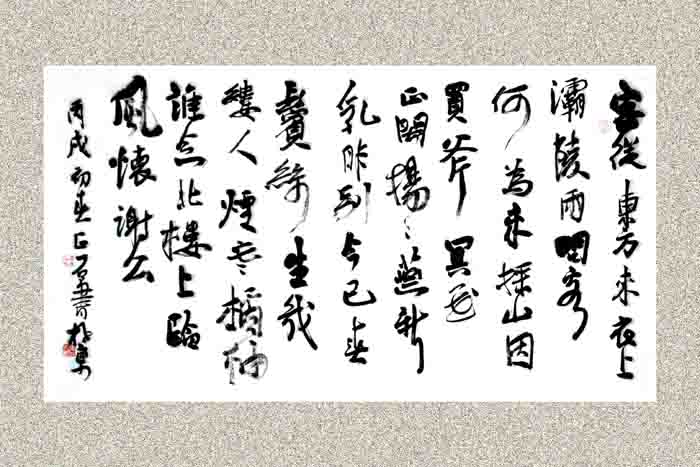 客從東方来衣上
灞陵雨問客
何為来採山因
買斧冥花
正開揚〻燕新
乳昨别今已春
鬢絲生幾
縷人煙橘柚
誰念北樓上臨
風懷謝公
丙戌初春書於